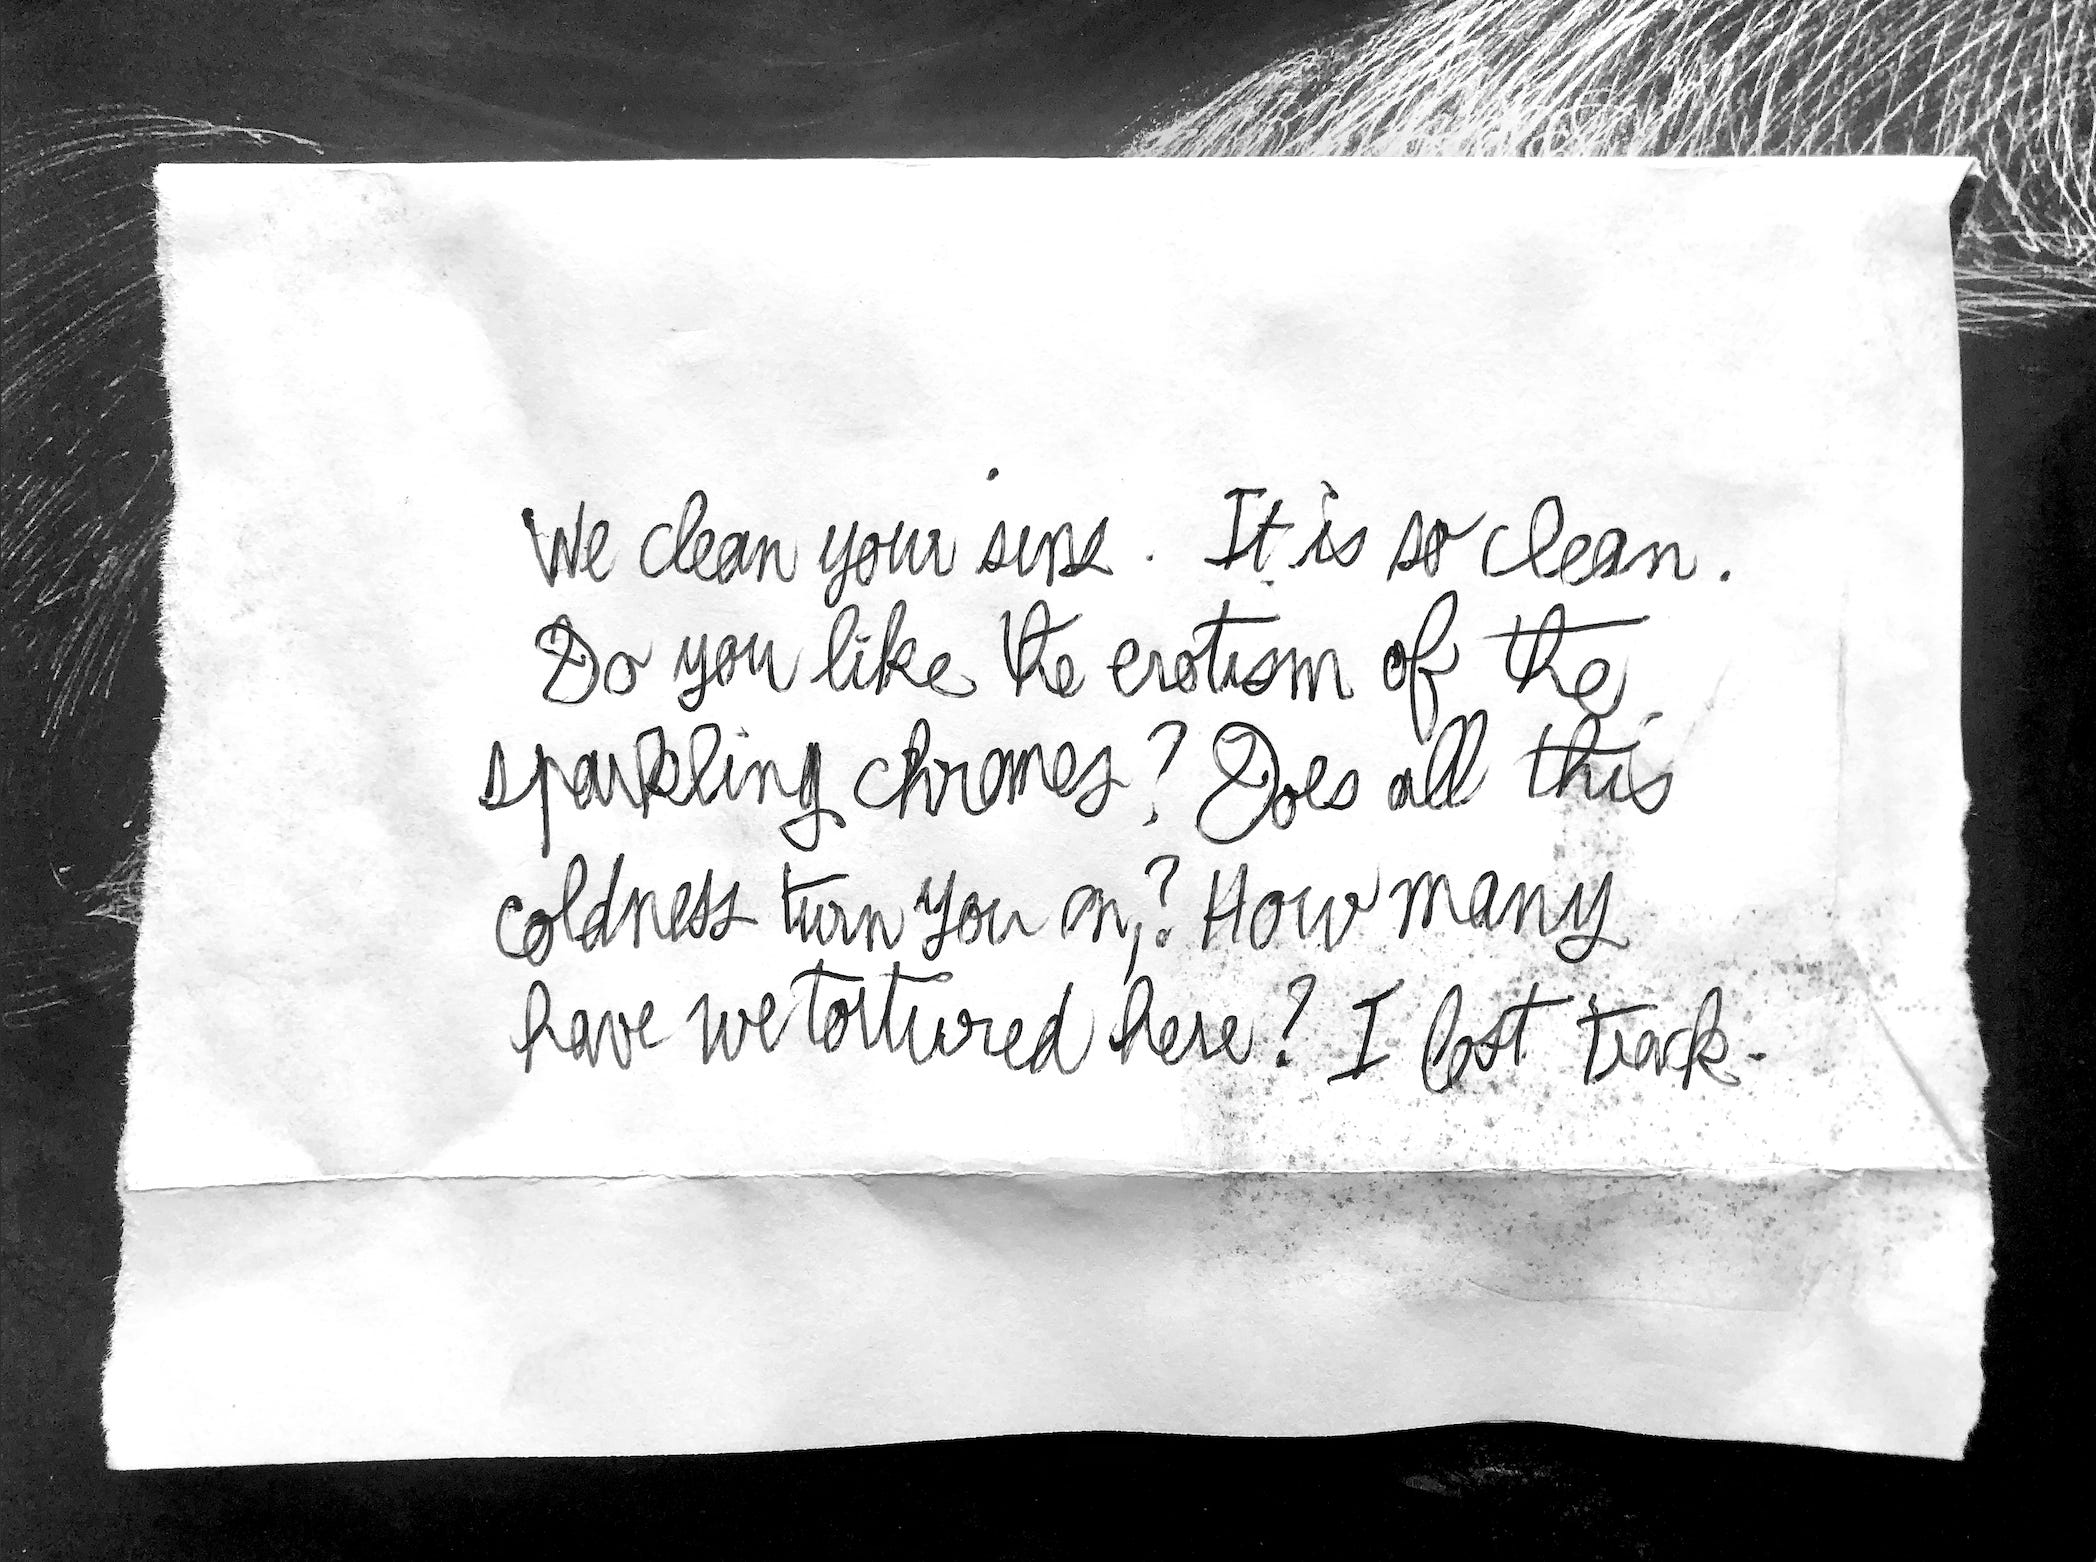 We clean your sins. It is so clean.
Do you like the erotism of the
sparkling chromes? Does all this
coldness turn you on,? How many
have we tortured here? I lost track.